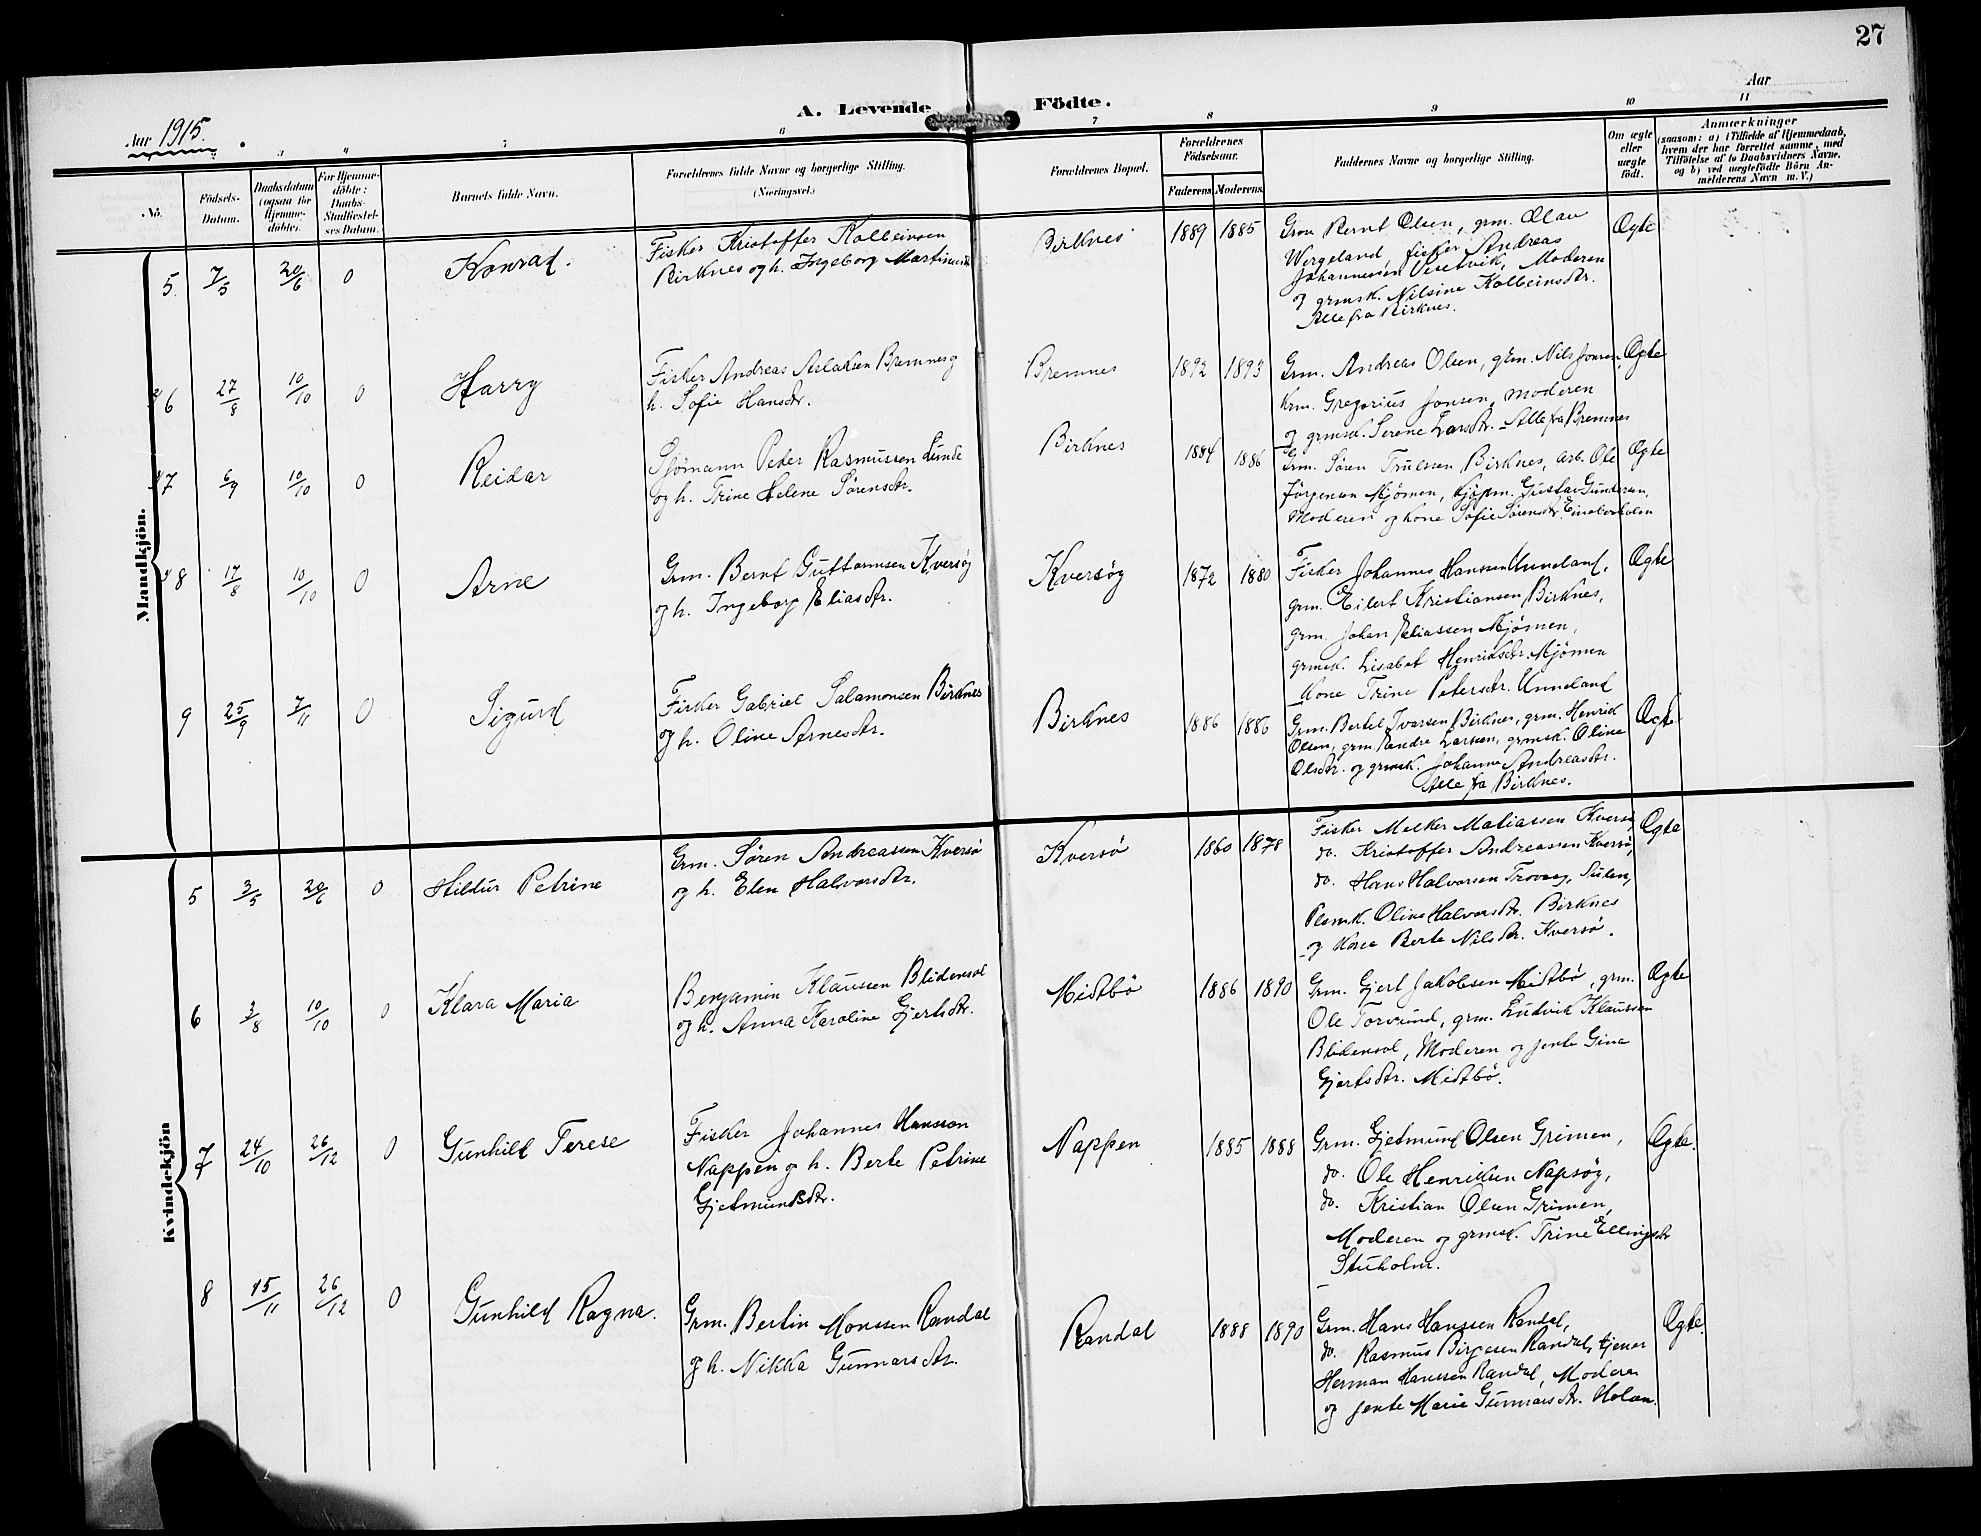 27
Aar 1915.
A. Levende Födte.
Aar
3 4 5 6 7 8 9 10 11
No.
Födsels-Datum.
Daabsdatum (ogsaa for Hjemme-döbte).
For Hjemme-döbte: Daabs-Stadfæstel-ses Datum.
Barnets fulde Navn.
Forældrenes fulde Navne og borgerlige Stilling.
(Næringsvei.)
Forældrenes Bopæl.
Forældrenes Födselsaar.
Faderens Moderens.
Faddernes Navne og borgerlige Stilling.
Om ægte eller uægte födt.
Anmærkninger
(saasom: a) i Tilfælde af Hjemmedaab,
hvem der har forrettet samme, med
Tilföielse af to Daabsvidners Navne,
og b) ved uægtefödte Börn An-
melderens Navn m. V.)
Mandkjön.
5 7/5 20/6 0 Konrad.
Fisker Kristoffer Kolbeinsen
Birknes og h. Ingeborg
Birknes 1889 1885
Grm Bernt Olsen, grm. Olav
Wergeland, fisker Andreas
Johannessen, Moderen
og grmsk. Nilsine Kolbeinsdtr.
Alle fra Birknes.
Ægte
6 27/8 10/10 0 Harry
Fisker Andreas Aslaksen Bremnes og
h. Sofie Hansdtr.
Bremnes 1892 1893
Grm. Andreas Olsen, grm. Nils Jonsen,
Krm. Gregorius Jonsen, moderen
og grmsk. Serene Larsdtr. Alle fra Bremnes
Ægte
7 6/9 10/10 0 Reidar
Sjömann Peder Rasmussen Lunde
og h. Trine Helene Sörensdtr.
Birknes 1884 1886
Grm. Sören Truelsen Birknes, arb. Ole
Jörgensen Mjömen, kjöpm. Gustav Gundersen,
Moderen og kone Sofie Sörensdtr.
Ægte
8 17/8 10/10 0 Arne
Grm. Bernt Guttormsen Kversöy
og h. Ingeborg Eliasdtr.
Kversöy 1872 1880
Fisker Johannes Hanssen Unneland,
grm. Eilert Kristiansen Birknes,
grm. Johan Eliassen Mjömen,
grmsk. Lisabet Henriksdtr. Mjömen
Kone Trine Petersdtr. Unneland
Ægte
9 25/9 7/11 0 Sigurd
Fisker Gabriel Salamonsen Birknes
og h. Oline Arnesdtr.
Birknes 1886 1886
Grm. Bertel Ivarsen Birknes, grm. Henrik
Olsen, grm. Andre Larsen, grmsk. Oline
Olsdtr. og grmsk. Johanne Andreasdtr.
Alle fra Birknes.
Ægte
Kvindekjön
5 3/5 20/6 0 Hildur Petrine
Grm. Sören Andreassen Kversö
og h. Elen Halvorsdtr.
Kversö 1860 1878
Fisker Melker Matiassen Kversö,
do. Kristoffer Andreassen Kversö,
do. Hans Halvorsen Trovaag, Sulen,
Olina Halvorsdtr. Birknes
og Kone Berte Nilsdtr. Kversö.
Ægte
6 3/8 10/10 0 Klara Maria
Benjamin Klaussen Blidensol
og h. Anna Karoline Gjertsdtr.
Midtbö 1886 1890
Grm. Gjert Jakobsen Midtbö, grm.
Ole Torvund, grm. Ludvik Klaussen
Blidensol, Moderen og jente Gina
Gjertsdtr. Midtbö.
Ægte
7 24/10 26/12 0 Gunhild Terese
Fisker Johannes Hansson
Nappen og h. Berte Petrine
Gjetmundsdtr.
Nappen 1885 1888
Grm. Gjetmund Olsen Grimen,
do. Ole Henriksen Napsöy,
do. Kristian Olsen Grimen,
Moderen og grmsk. Trine Ellingsdtr
Stuholm.
Ægte.
8 15/11 26/12 0 Gunhild Ragna.
Grm. Bertin Monssen Randal
og h. Nikka Gunnarsdtr.
Randal 1888 1890
Grm. Hans Hanssen Randal,
do. Rasmus Birgesen Randal, tjener
Herman Hanssen Randal, Moderen
og jente Marie Gunnarsdtr. Holan.
Ægte.